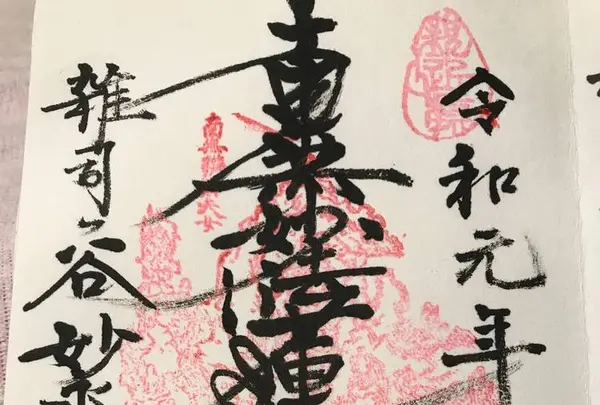 令和元年
南無妙法蓮
雑司谷妙